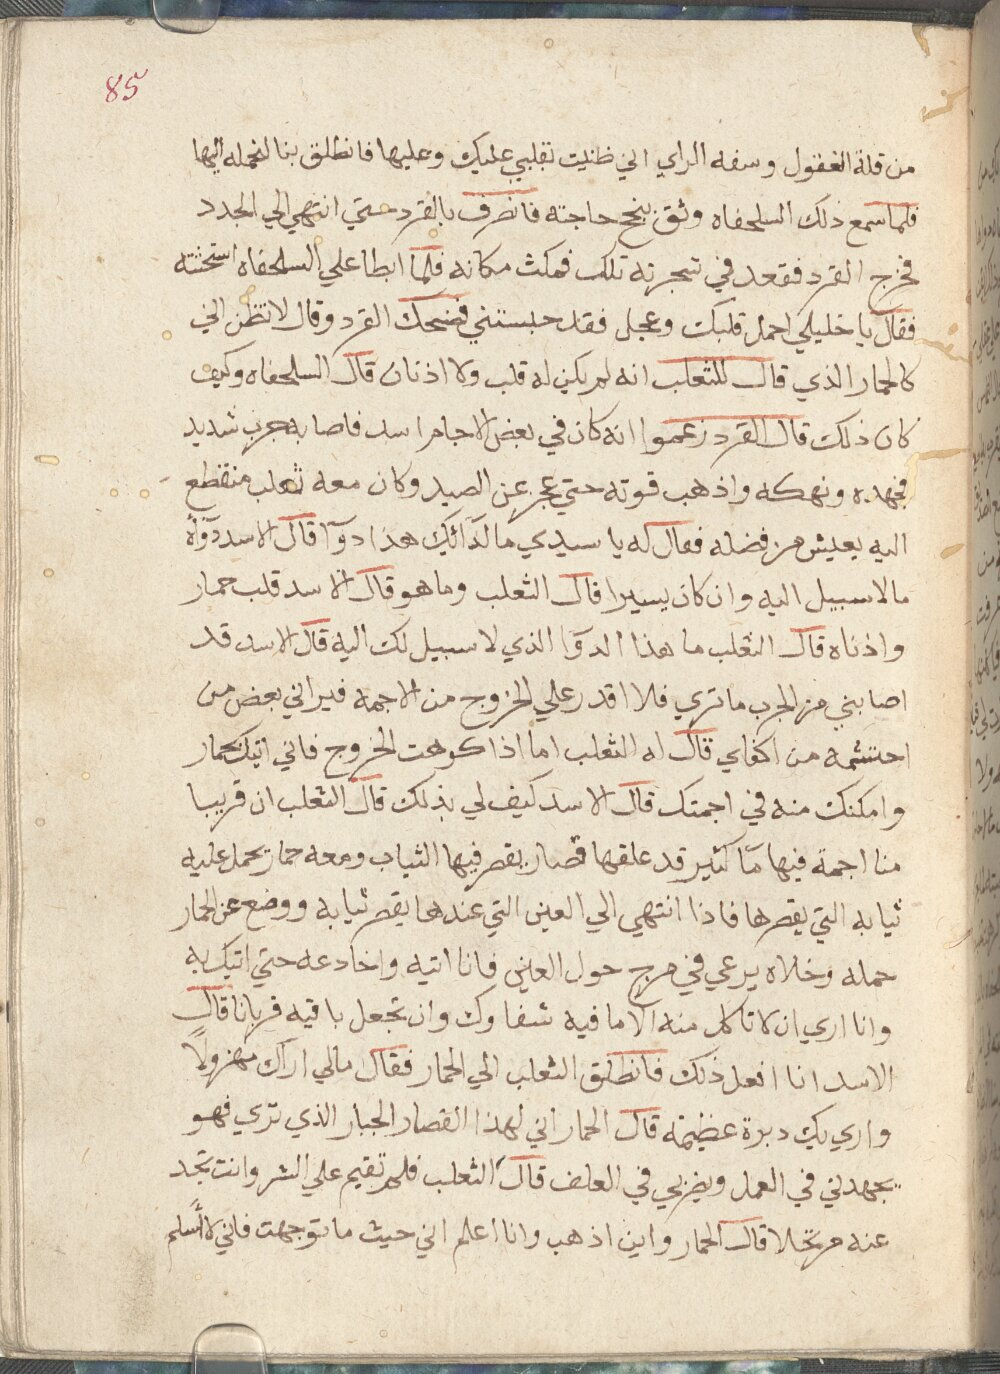 85
من قلة العقول وسفه الراي الي ظنيت بقلبي عليك وعليها فانطلق بنا لنحمله اليها
فلما سمع ذلك السلحفاه وثق بنجح حاجته فانصرف بالقرد حتي انتهي الي الجدد
فخرج القرد فقعد في شجرته تلك فمكث مكانه فلما ابطا علي السلحفاه استحثته
فقال يا خليلي احمل قلبك وعجل فقد حبستني فضحك القرد وقال لا تظن اني
كالحمار الذي قال للثعلب انه لم يكن له قلب ولا اذنان قال السلحفاه وكيف
كان ذلك قال القرد زعموا انه كان في بعض الاجام اسد فاصابه جرب شديد
فجهده ونهكه واذهب قوته حتي عجز عن الصيد وكان معه ثعلب منقطع
اليه يعيش من فضله فقال له يا سيدي ما لدائك هذا دوآ قال الاسد دوآه
ما لا سبيل اليه وان كان يسيرا قال الثعلب وما هو قال الاسد قلب حمار
واذناه قال الثعلب ما هذا الدوا الذي لا سبيل لك اليه قال الاسد قد
اصابني من الجرب ما تري فلا اقدر علي الخروج من الاجمه فيراني بعض من
احتشمه من اكفاي قال له الثعلب اما اذا كرهت الخروج فاني اتيك بحمار
وامكنك منه في اجمتك قال الاسد كيف لي بذلك قال الثعلب ان قريبا
منا اجمة فيها مآ كثير قد علقها قصار يقصر فيها الثياب ومعه حمار يحمل عليه
ثيابه التي يقصرها فاذا انتهي الي العين التي عندها يقصر ثيابه ووضع عن الحمار
حمله وخلاه يرعي في مرج حول العين فانا اتيه واخادعه حتي اتيك به
وانا اري ان لا تاكل منه الا ما فيه شفاوك وان تجعل باقيه قربانا قال
الاسد انا افعل ذلك فانطلق الثعلب الي الحمار فقال مالي اراك مهزولًا
واري بك دبرة عظيمة قال الحمار اني لهذا القصار الجبار الذي تري فهو
يجهدني في العمل ويضر بي في العلف قال الثعلب فلم تقيم علي الشر وانت تجد
عنه مرتحلا قال الحمار واين اذهب وانا اعلم اني حيث ما توجهت فاني لا اسلم